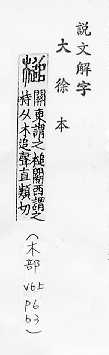 説文解字
大徐本
關東謂之槌關西謂之
持从木追聲直類切
(木部
V6上
P6
b3)